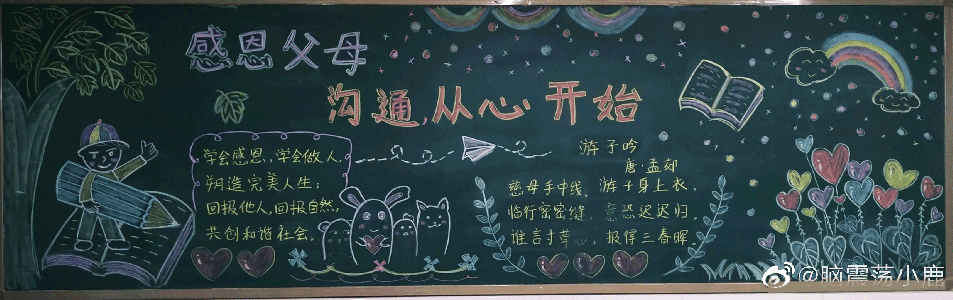 感恩父母
沟通,从心开始
学会感恩,学会做人,
塑造完美人生;
回报他人,回报自然,
共创和谐社会。
游子吟
唐·孟郊
慈母手中线,游子身上衣。
临行密密缝,意恐迟迟归。
谁言寸草心,报得三春晖。
@脑震荡小鹿